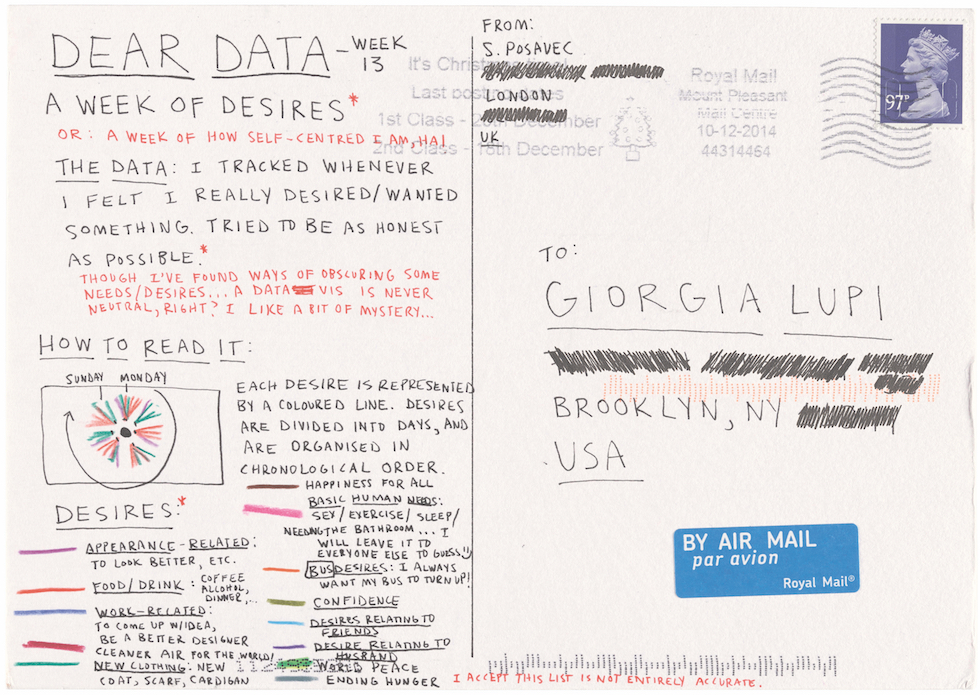 DEAR DATA - WEEK 13
A WEEK OF DESIRES*
OR: A WEEK OF HOW SELF-CENTRED I AM, HA!
THE DATA: I TRACKED WHENEVER
I FELT I REALLY DESIRED/WANTED
SOMETHING. TRIED TO BE AS HONEST
AS POSSIBLE.*
THOUGH I'VE FOUND WAYS OF OBSCURING SOME
NEEDS/DESIRES... A DATA VIS IS NEVER
NEUTRAL, RIGHT? I LIKE A BIT OF MYSTERY...
HOW TO READ IT:
SUNDAY MONDAY
EACH DESIRE IS REPRESENTED
BY A COLOURED LINE. DESIRES
ARE DIVIDED INTO DAYS, AND
ARE ORGANISED IN
CHRONOLOGICAL ORDER.
DESIRES:*
APPEARANCE-RELATED:
TO LOOK BETTER, ETC.
FOOD/DRINK: COFFEE
ALCOHOL,
DINNER,...
WORK-RELATED:
TO COME UP W/IDEA,
BE A BETTER DESIGNER
CLEANER AIR FOR THE WORLD!
NEW CLOTHING: NEW
COAT, SCARF, CARDIGAN
HAPPINESS FOR ALL
BASIC HUMAN NEEDS:
SEX/EXERCISE/SLEEP/
NEEDING THE BATHROOM... I
WILL LEAVE IT TO
EVERYONE ELSE TO GUESS
BUS DESIRES: I ALWAYS
WANT MY BUS TO TURN UP!
CONFIDENCE
DESIRES RELATING TO
FRIENDS
DESIRE RELATING TO
HUSBAND
WORLD PEACE
ENDING HUNGER
I ACCEPT THIS LIST IS NOT ENTIRELY ACCURATE.
FROM:
S. POSAVEC
LONDON
UK
It's Christmas
Last posting dates
1st Class - December
2nd Class - 18th December
Royal Mail
Mount Pleasant
Mail Centre
10-12-2014
44314464
97P
TO:
GIORGIA LUPI
BROOKLYN, NY
USA
BY AIR MAIL
par avion
Royal Mail®